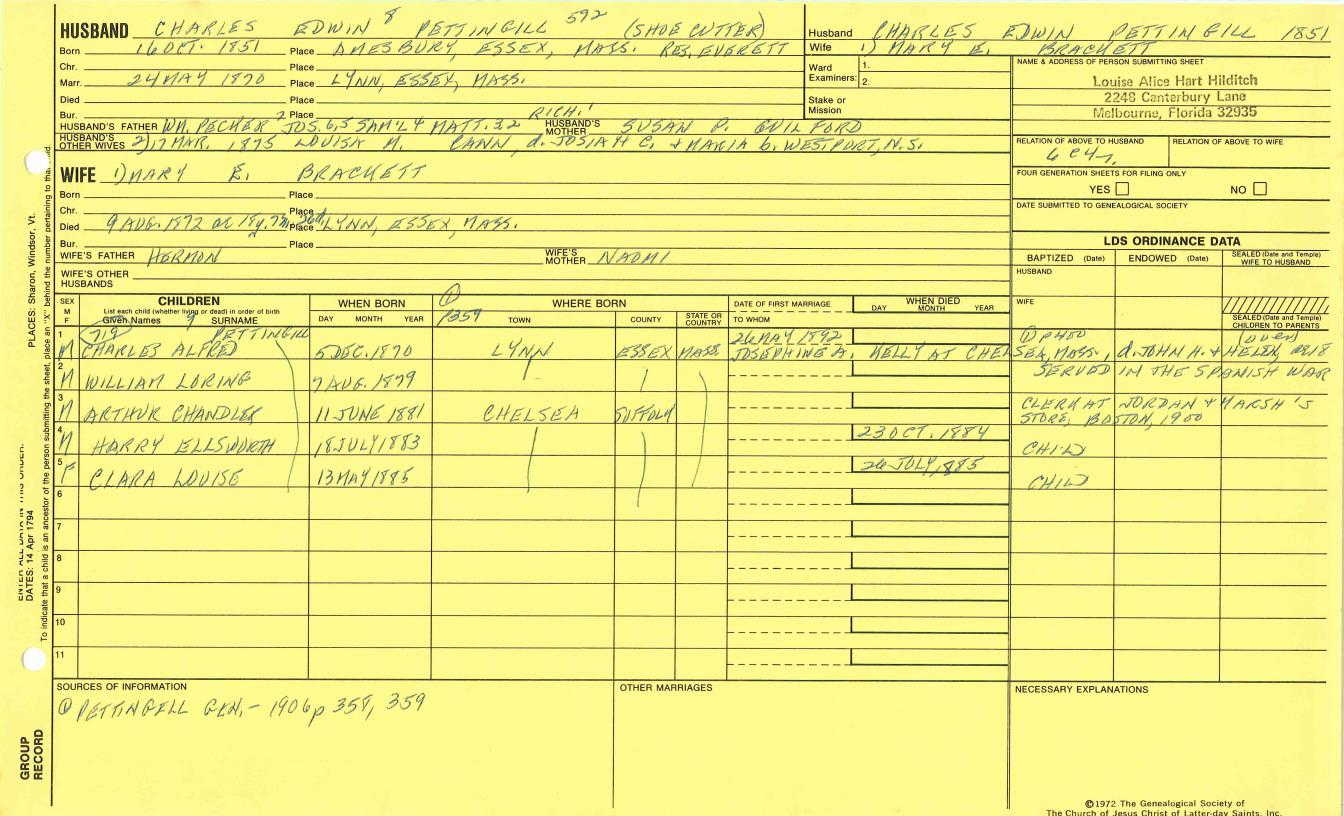 HUSBAND CHARLES EDWIN 8 PETTINGILL 592 (SHOE CUTTER)
Born 16 OCT. 1851 Place AMESBURY, ESSEX, MASS. RES. EVERETT
Chr. Place
Marr. 24 MAY 1870 Place LYNN, ESSEX, MASS.
Died Place
Bur. Place
HUSBAND'S FATHER WM. PECHER 7 JOS. 6,5 SAM'L 4 MATT. 3,2 RICH.1 HUSBAND'S MOTHER SUSAN P. GUILFORD
HUSBAND'S OTHER WIVES 2) 17 MAR. 1875 LOUISA M. CANN, d. JOSIAH C. + MARIA G. WESTPORT, N.S.
Husband CHARLES EDWIN PETTINGILL 1851
Wife 1) MARY E. BRACKETT
Ward Examiners: 1.
2.
Stake or Mission
NAME & ADDRESS OF PERSON SUBMITTING SHEET
Louise Alice Hart Hilditch
2248 Canterbury Lane
Melbourne, Florida 32935
RELATION OF ABOVE TO HUSBAND RELATION OF ABOVE TO WIFE
6 C 4 r.
FOUR GENERATION SHEETS FOR FILING ONLY
YES NO
DATE SUBMITTED TO GENEALOGICAL SOCIETY
WIFE 1) MARY E. BRACKETT
Born Place
Chr. Place
Died 9 AUG. 1872 Place LYNN, ESSEX, MASS.
Bur. Place
WIFE'S FATHER HERMON WIFE'S MOTHER NAOMI
WIFE'S OTHER HUSBANDS
LDS ORDINANCE DATA
BAPTIZED (Date) ENDOWED (Date) SEALED (Date and Temple) WIFE TO HUSBAND
HUSBAND
WIFE
SEALED (Date and Temple) CHILDREN TO PARENTS
SEX M F CHILDREN
List each child (whether living or dead) in order of birth
Given Names 9 SURNAME
WHEN BORN
DAY MONTH YEAR
① P359 WHERE BORN
TOWN COUNTY STATE OR COUNTRY
DATE OF FIRST MARRIAGE
TO WHOM
WHEN DIED
DAY MONTH YEAR
1 719 PETTINGILL 26 MAY 1892 ① p 450 (over)
M CHARLES ALFRED 5 DEC. 1870 LYNN ESSEX MASS JOSEPHINE A. KELLY AT CHELSEA, MASS., d. JOHN H. + HELEN,
2 M WILLIAM LORING 7 AUG. 1879 SERVED IN THE SPANISH WAR
3 M ARTHUR CHANDLER 11 JUNE 1881 CHELSEA SUFFOLK CLERK AT JORDAN + MARSH'S STORE, BOSTON, 1900
4 M HARRY ELLSWORTH 18 JULY 1883 23 OCT. 1884 CHILD
5 F CLARA LOUISE 13 MAY 1885 26 JULY 1885 CHILD
6
7
8
9
10
11
SOURCES OF INFORMATION
① PETTINGELL GEN. - 1906 p 358, 359
OTHER MARRIAGES
NECESSARY EXPLANATIONS
©1972 The Genealogical Society of
The Church of Jesus Christ of Latter-day Saints, Inc.
PLACES: Sharon, Windsor, Vt.
ENTER ALL DATA IN THIS ORDER:
DATES: 14 Apr 1794
To indicate that a child is an ancestor of the person submitting the sheet, place an "X" behind the number pertaining to that
GROUP RECORD